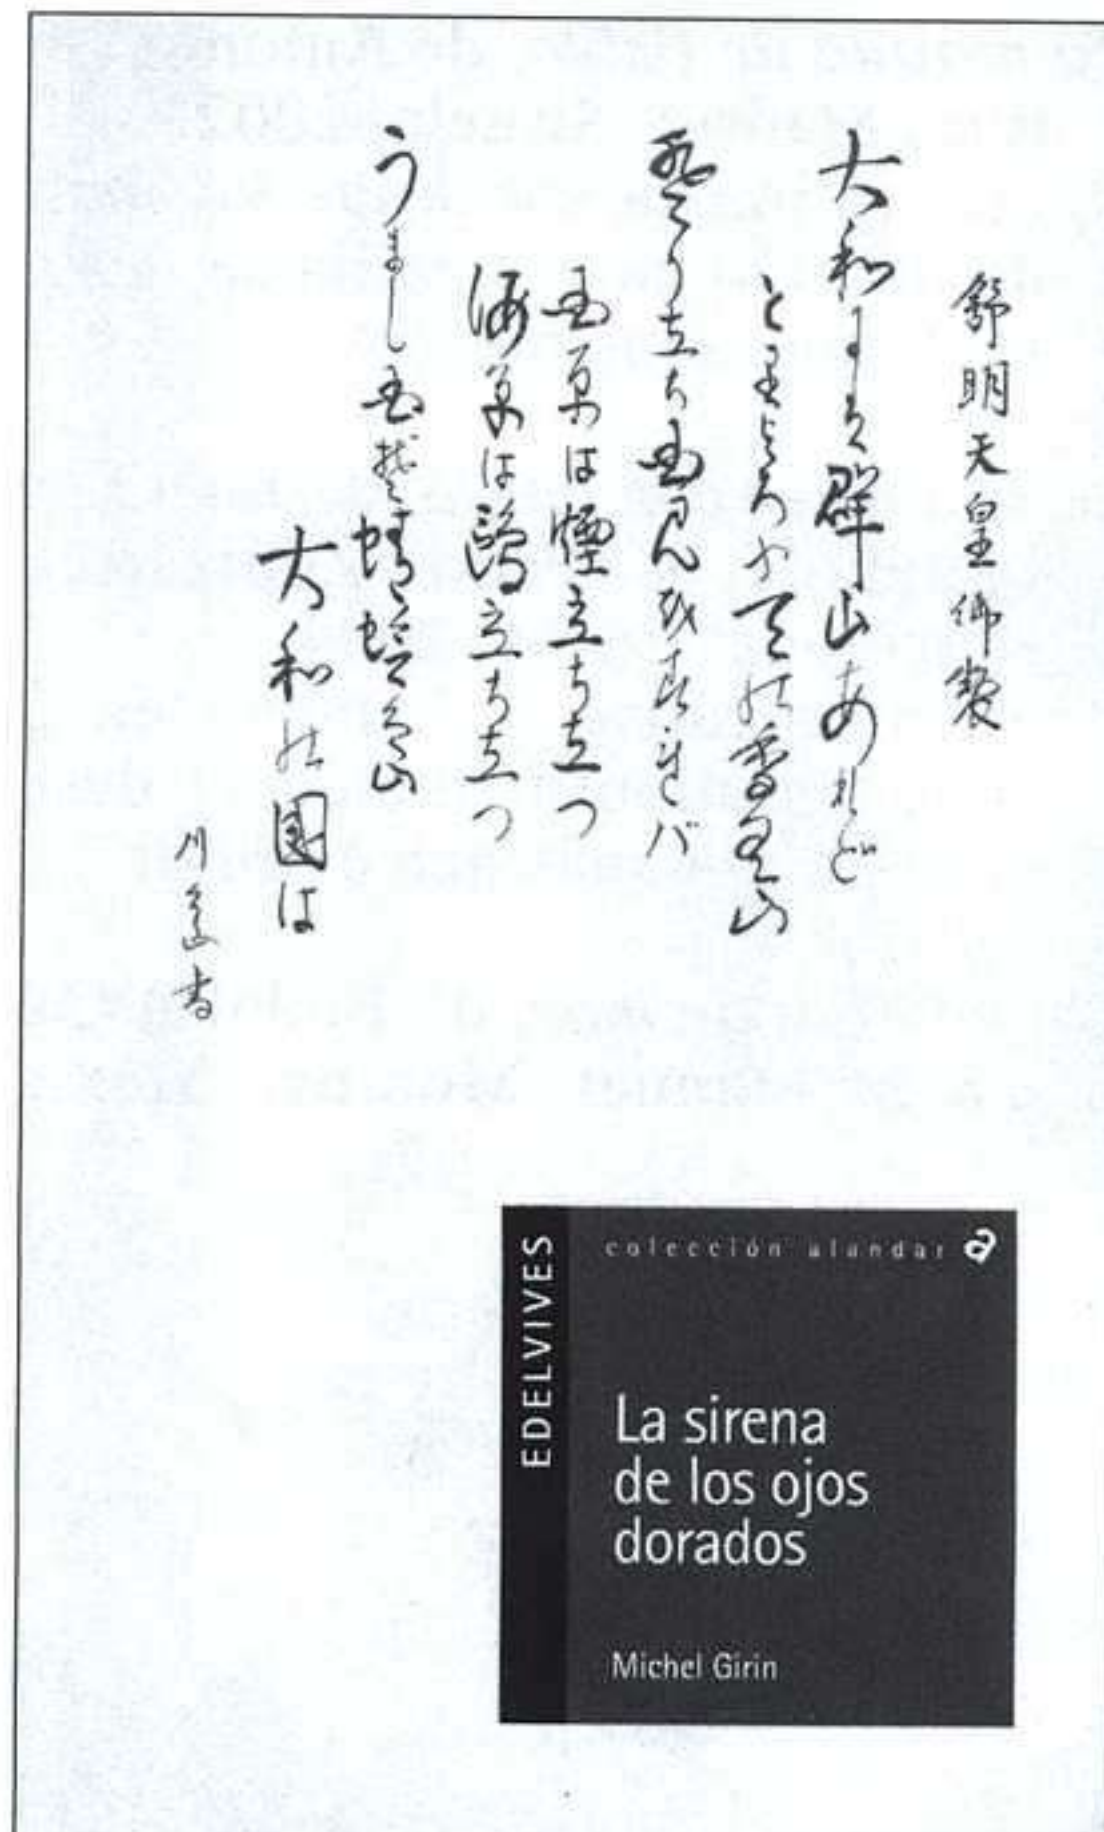 舒明天皇御製
大和には群山あれど
とりよろふ天の香具山
登り立ち国見をすれバ
国原は煙立ち立つ
海原は鴎立ち立つ
うまし国ぞ蜻蛉島
大和の國は
EDELVIVES
colección alandar a
La sirena
de los ojos
dorados
Michel Girin